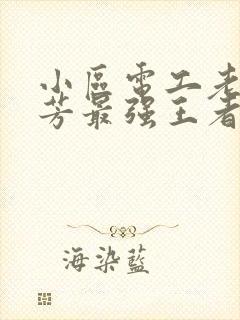 小區電工老
芳最强王者
海染藍